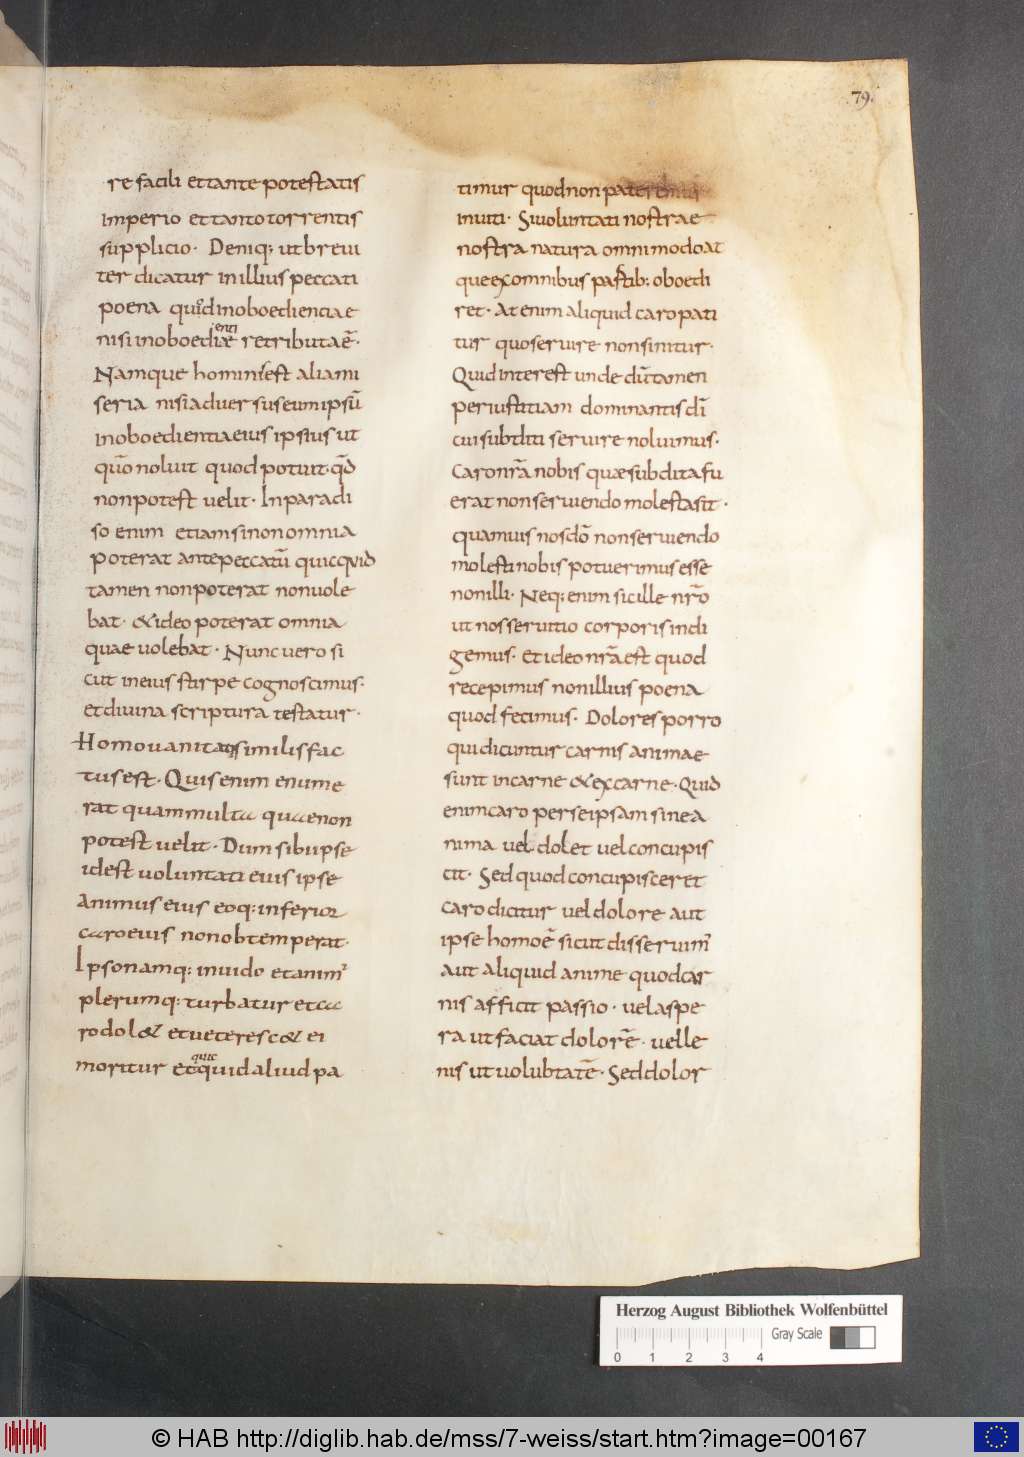 79.
re facili et tante potestatis
imperio et tanto torrentis
supplicio. Deniq; ut brevi
ter dicatur in illius peccati
poena quid inoboedienciae
nisi inoboedientiae retributa ē.
Namque hominis est alia mi
seria nisi adversus eum ipsū
inoboedientia eius ipsius ut
quō noluit quod potuit. qd̄
non potest velit. In paradi
so enim etiamsi non omnia
poterat ante peccatū quicquid
tamen non poterat non vole
bat. & ideo poterat omnia
quae volebat. Nunc vero si
cut in eius stirpe cognoscimus.
et divina scriptura testatur.
Homo vanitati similis fac
tus est. Quis enim enume
rat quam multa quae non
potest velit. Dum sibi ipse
id est voluntati eius ipse
animus eius eoq; inferior
caro eius non obtemperat.
Ipso namq; invido et anim'
plerumq; turbatur et ca
ro dol& et veteresc& ei
moritur et quicquid aliud pa
timur quod non pateremur
inviti. Si voluntati nostrae
nostra natura omnimodo at
que ex omnibus partib; oboedi
ret. At enim aliquid caro pati
tur quo servire non sinitur.
Quid interest unde dū tamen
per iustitiam dominantis dī
cui subditi servire noluimus.
Caro nr̄a nobis quae subdita fu
erat non serviendo molesta sit.
quamvis nos dō non serviendo
molesti nobis potuerimus esse
non illi. Neq; enim sic ille nr̄o
ut nos servitio corporis indi
gemus. Et ideo nr̄a est quod
recepimus non illius poena
quod fecimus. Dolores porro
qui dicuntur carnis animae
sunt in carne & ex carne. Quid
enim caro per se ipsam sine a
nima vel dolet vel concupis
cit. Sed quod concupisceret
caro dicitur vel dolore aut
ipse homo ē sicut disseruim'
aut aliquid anime quod car
nis afficit passio. vel aspe
ra ut faciat dolorē. vel le
nis ut volubtatē. Sed dolor
Herzog August Bibliothek Wolfenbüttel
Gray Scale
0 1 2 3 4
© HAB http://diglib.hab.de/mss/7-weiss/start.htm?image=00167